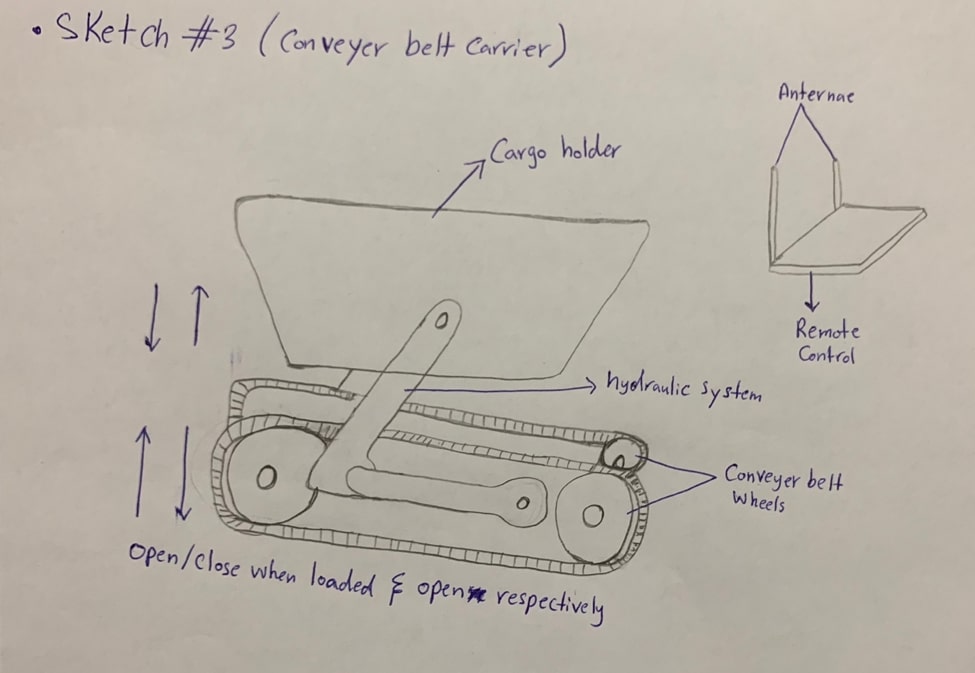 • Sketch #3 (Conveyer belt Carrier)
Anternae
Cargo holder
Remote
Control
hydraulic system
Conveyer belt
Wheels
Open/Close when loaded & open respectively